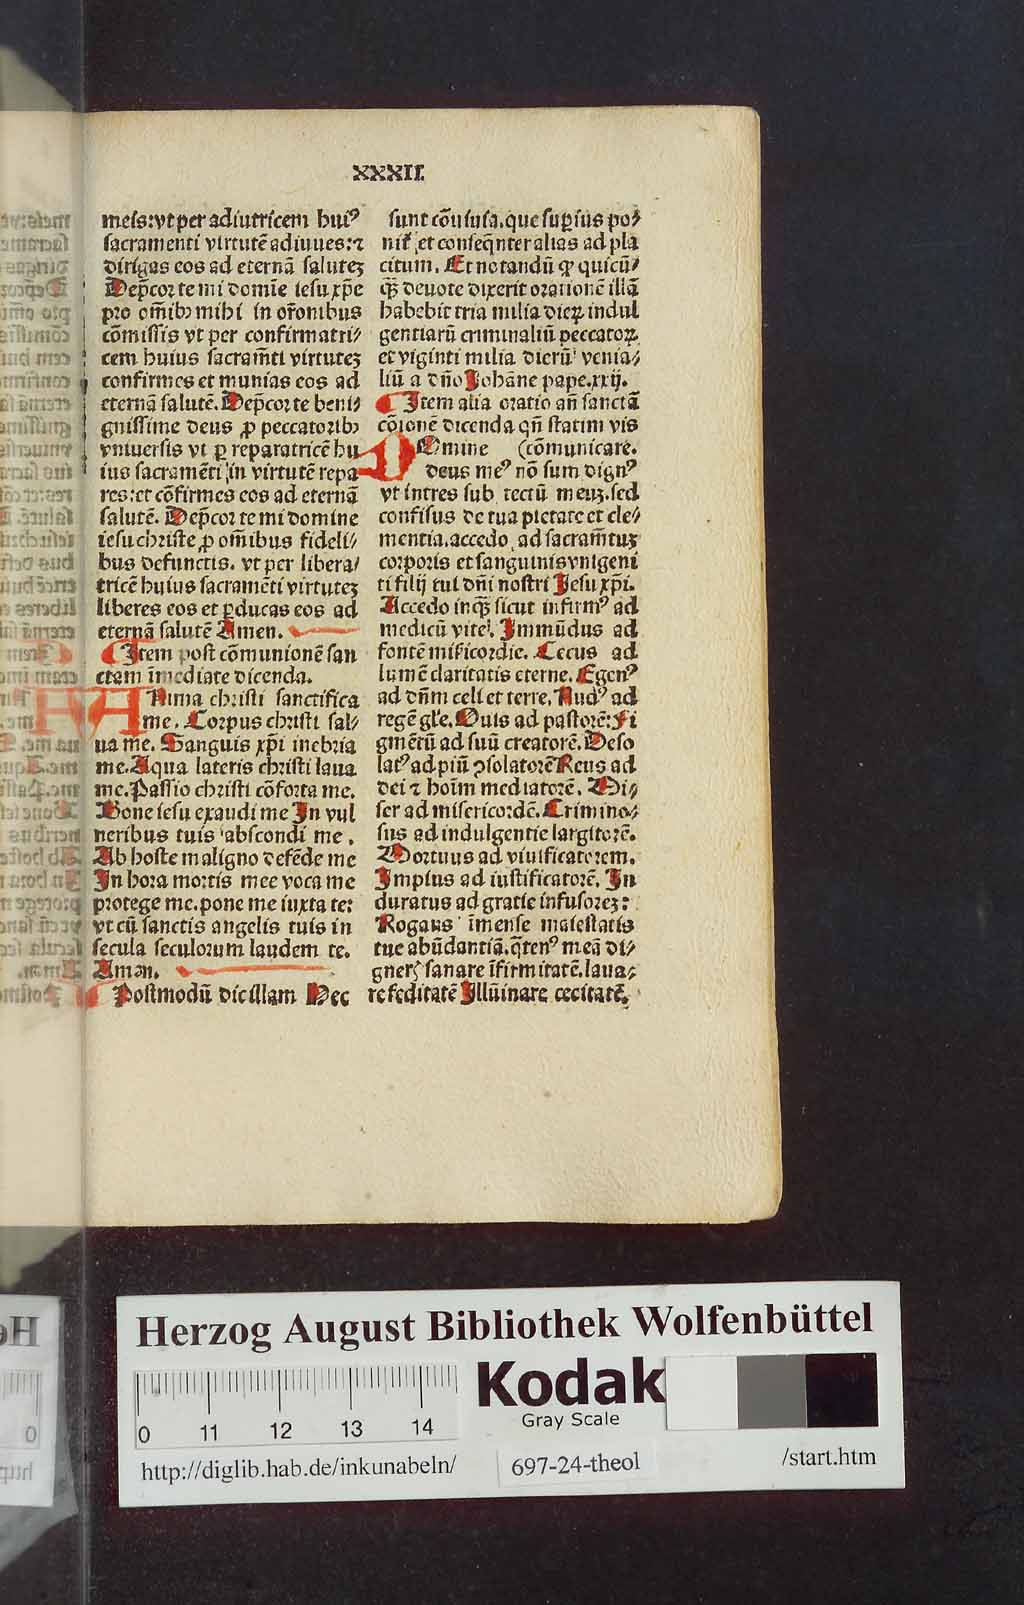 XXXII.
meis: vt per adiutricem huiꝰ
sacramenti virtutē adiuues: ⁊
dirigas eos ad eternā salutez
Dep̄cor te mi domīe iesu xp̄e
pro om̄ibꝫ mihi in or̄onibus
cōmissis vt per confirmatri⸗
cem huius sacram̄ti virtutez
confirmes et munias eos ad
eternā salutē. Dep̄cor te beni⸗
gnissime deus ꝓ peccatoribꝫ
vniuersis vt ꝑ reparatricē hu
ius sacramēti in virtutē repa
res: et cōfirmes eos ad eternā
salutē. Dep̄cor te mi domine
iesu christe ꝓ om̄ibus fideli⸗
bus defunctis. vt per libera⸗
tricē huius sacramēti virtutez
liberes eos et ꝑducas eos ad
eternā salutē Amen.
Item post cōmunionē san
ctam īmediate dicenda.
ANima christi sanctifica
me. Corpus christi sal⸗
ua me. Sanguis xp̄i inebria
me. Aqua lateris christi laua
me. Passio christi cōforta me.
Bone iesu exaudi me In vul
neribus tuis abscondi me.
Ab hoste maligno defēde me
In hora mortis mee voca me
protege me. pone me iuxta te:
vt cū sanctis angelis tuis in
secula seculorum laudem te.
Amen.
Postmodū dic illam Nec
sunt cōuisusa. que suꝑius po⸗
nit᷑ et conseq̄nter alias ad pla
citum. Et notandū ꝙ quicū⸗
qꝫ deuote dixerit orationē illā
habebit tria milia dieꝝ indul
gentiarū criminaliū peccatoꝝ
et viginti milia dierū venia⸗
liū a dn̄o Johāne pape. xxij.
Item alia oratio an̄ sanctā
cōionē dicenda qn̄ statim vis
DOmine (cōmunicare.
deus meꝰ nō sum dignꝰ
vt intres sub tectū meuz. sed
confisus de tua pietate et cle⸗
mentia. accedo ad sacram̄tuz
corporis et sanguinis vnigeni
ti filij tui dn̄i nostri Jesu xp̄i.
Accedo inqꝫ sicut infirmꝰ ad
medicū vite. Immūdus ad
fontē mīficordie. Cecus ad
lumē claritatis eterne. Egenꝰ
ad dn̄m celi et terre. Nudꝰ ad
regē gl̄e. Ouis ad pastorē: Fi
gmētū ad suū creatorē. Deso
latꝰ ad piū ꝯsolatorē Reus ad
dei ⁊ hoīm mediatorē. Mi⸗
ser ad misericordē. Crimino⸗
sus ad indulgentie largitorē.
Mortuus ad viuificatorem.
Impius ad iustificatorē. In
duratus ad gratie infusorez:
Rogans īmense maiestatis
tue abūdantiā. q̄tenꝰ meā di⸗
gneris sanare īfirmitatē. laua⸗
re feditatē Illūinare cecitatē.
Herzog August Bibliothek Wolfenbüttel
Kodak
Gray Scale
0 11 12 13 14
http://diglib.hab.de/inkunabeln/
697-24-theol
/start.htm